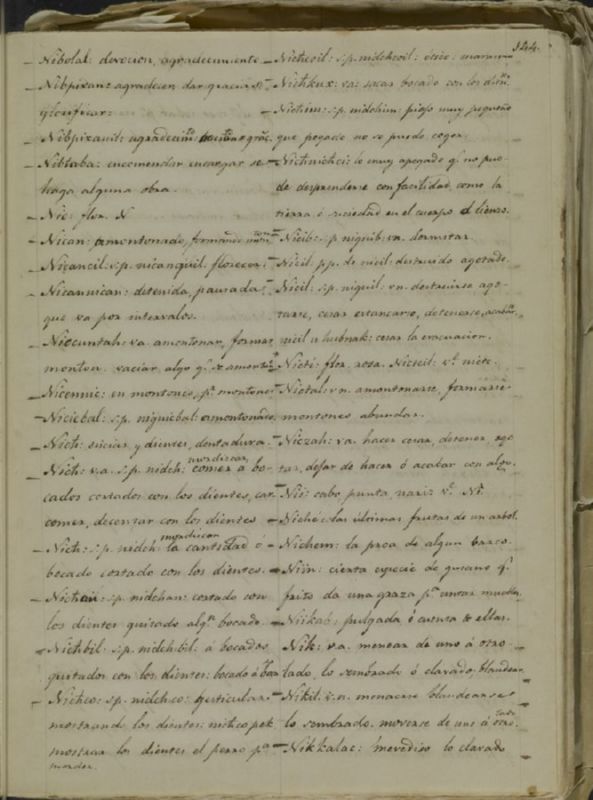 144.
– Nibolal: devocion, agradecimiento
– Nibpixan: agradecer, dar gracias
glorificar:
– Nibpixanil: agradecim.to
– Nibtaba: encomendar encargar se
haga alguna obra.
– Nic: flor. N
– Nican: amontonado, formando
– Nicancil: s.p. nicanquil. florecer.
– Nicannican: detenida, pausada
que va por intervalos.
– Niccuntah: va. amontonar, formar
monton. vaciar, algo q.e se
– Nicennic: en montones, p.r montones
– Niciebal: s.p. niquiebal: amontonarse
– Nich: encias, y dientes, dentadura.
mordiscar,
– Nich: v.a. s.p. nidch: comer a bo-
cados cortados con los dientes, car
comer, decentar con los dientes
mordiscon
– Nich: s.p. nidch: la cantidad ó
bocado cortado con los dientes.
– Nichan: s.p. nidchan: cortado con
los dientes quitado alg.n bocado.
– Nichbil: s.p. nidchbil: á bocados
quitados con los dientes: bocado á
– Nichco: s.p. nidchco: gesticular
mostrando los dientes: nichco pek
mostrar los dientes el perro p.a
morder.
– Nichcoil: s.p. nidchcoil: idem:
– Nichkux: va: sacar bocado con los
– Nichim: s.p. nidchim: piojo muy pequeño
que pegado no se puede coger.
– Nichnichci: lo muy apegado q.e no pue-
de desprenderse con facilidad, como la
tierra ó suciedad en el cuerpo ó lienzo.
– Nicib: s.p. niquib: vn. dormitar.
– Nicil: pp. de nicil: destruido agotado.
– Nicil: s.p. niquil: vn. destruirse ago-
tarse, cesar estancarse, detenerse,
nicil u hubnak: cesar la evacuacion.
– Nicté: flor, rosa. Nicteil: v.e nicte.
– Nictal: vn. amontonarse, formarse
montones abundar.
– Niczah: va. hacer cesar, detener, ago
tar, dejar de hacer ó acabar con
– Nií: cabo, punta, nariz: v.e Ni.
– Niché: las últimas frutas de un arbol.
– Nichem: la proa de algun barco.
– Niin: cierta especie de gusano q.e
frito da una graza p.a untar
– Niikab: pulgada ó cuenta
– Nik: v.a. menear de uno á otro
lado, lo sembrado ó clavado, blandear
– Nikil: v.n. menearse blandearse
lado
lo sembrado. moverse de uno á otro
– Nikkalac: movedizo lo clavado